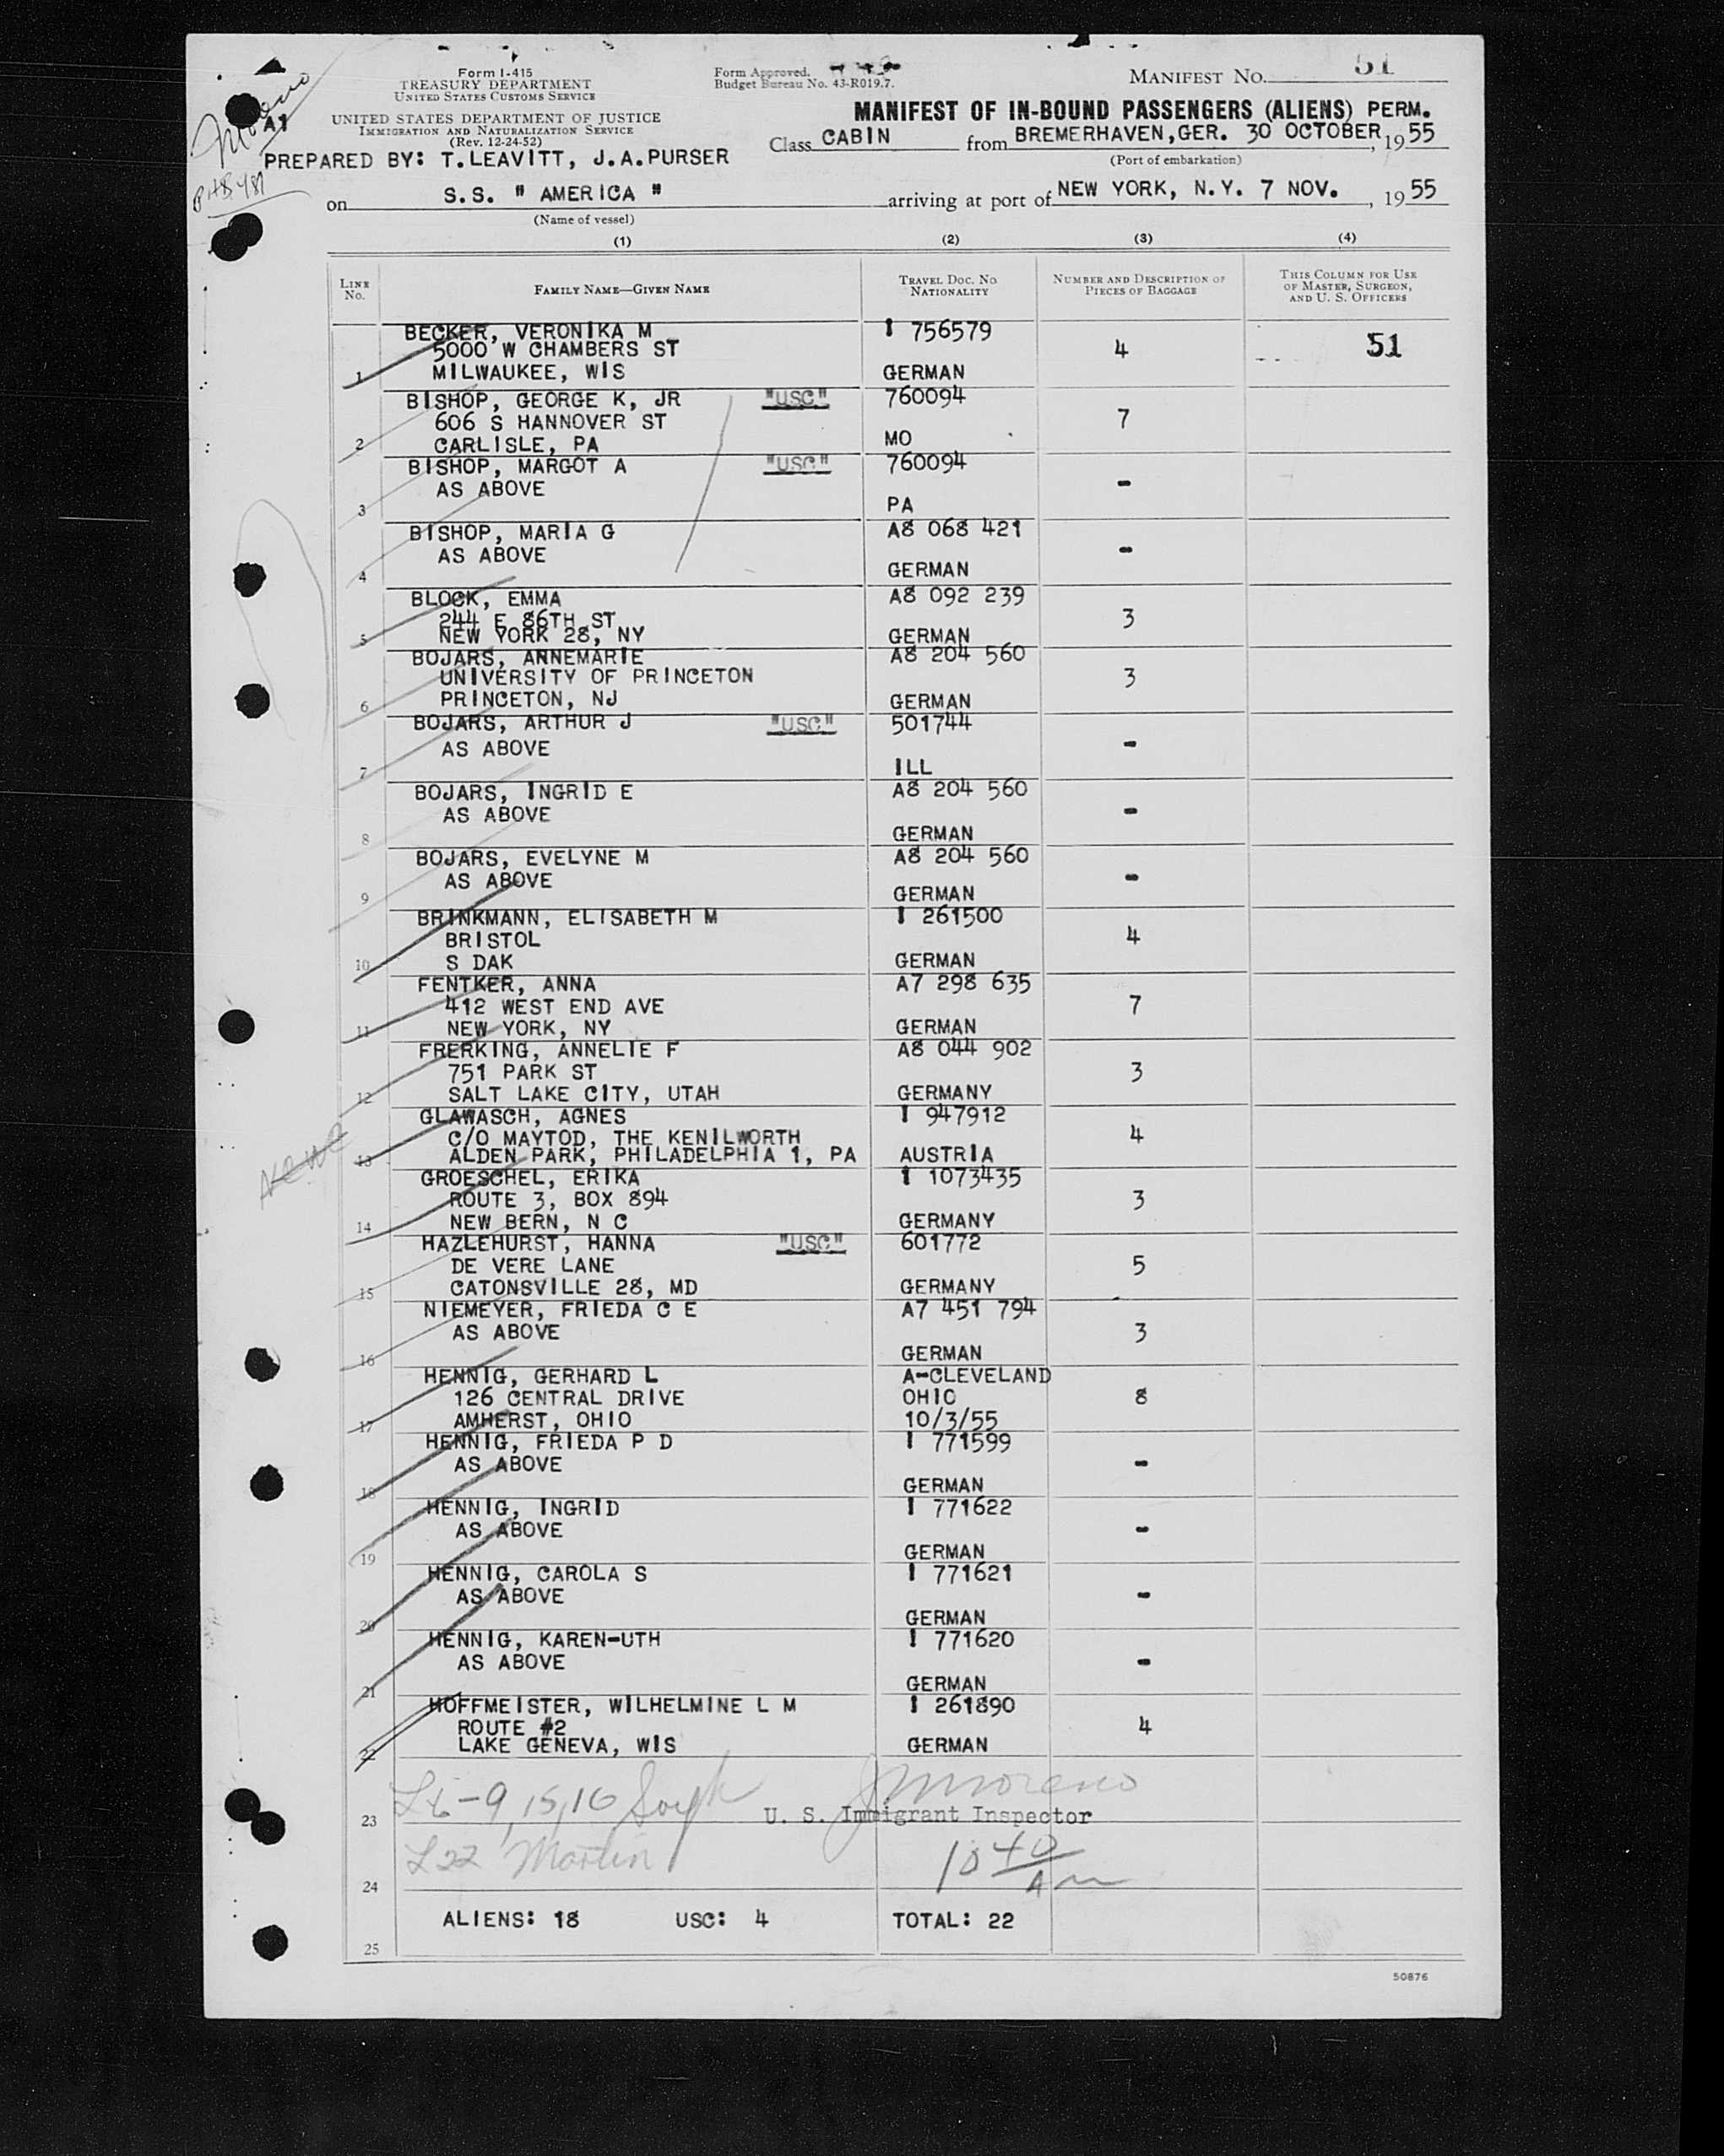 Form I-415
TREASURY DEPARTMENT
UNITED STATES CUSTOMS SERVICE
UNITED STATES DEPARTMENT OF JUSTICE
IMMIGRATION AND NATURALIZATION SERVICE
(Rev. 12-24-52)
Form Approved.
Budget Bureau No. 43-R019.7.
MANIFEST NO. 51
A1
MANIFEST OF IN-BOUND PASSENGERS (ALIENS) PERM.
PREPARED BY: T.LEAVITT, J.A.PURSER
Class CABIN from BREMERHAVEN,GER. 30 OCTOBER, 1955
(Port of embarkation)
on S.S. " AMERICA " arriving at port of NEW YORK, N.Y. 7 NOV. , 1955
(Name of vessel)
(1) (2) (3) (4)
LINE No. FAMILY NAME—GIVEN NAME TRAVEL DOC. NO. NATIONALITY NUMBER AND DESCRIPTION OF PIECES OF BAGGAGE THIS COLUMN FOR USE OF MASTER, SURGEON, AND U. S. OFFICERS
BECKER, VERONIKA M I 756579
5000 W CHAMBERS ST 4 51
1 MILWAUKEE, WIS GERMAN
BISHOP, GEORGE K, JR "USC" 760094
606 S HANNOVER ST 7
2 CARLISLE, PA MO
BISHOP, MARGOT A "USC" 760094
AS ABOVE -
3 PA
BISHOP, MARIA G A8 068 421
AS ABOVE -
4 GERMAN
BLOCK, EMMA A8 092 239
244 E 86TH ST 3
5 NEW YORK 28, NY GERMAN
BOJARS, ANNEMARIE A8 204 560
UNIVERSITY OF PRINCETON 3
6 PRINCETON, NJ GERMAN
BOJARS, ARTHUR J "USC" 501744
AS ABOVE -
7 ILL
BOJARS, INGRID E A8 204 560
AS ABOVE -
8 GERMAN
BOJARS, EVELYNE M A8 204 560
AS ABOVE -
9 GERMAN
BRINKMANN, ELISABETH M I 261500
BRISTOL 4
10 S DAK GERMAN
FENTKER, ANNA A7 298 635
412 WEST END AVE 7
11 NEW YORK, NY GERMAN
FRERKING, ANNELIE F A8 044 902
751 PARK ST 3
12 SALT LAKE CITY, UTAH GERMANY
GLAWASCH, AGNES I 947912
C/O MAYTOD, THE KENILWORTH 4
13 ALDEN PARK, PHILADELPHIA 1, PA AUSTRIA
GROESCHEL, ERIKA I 1073435
ROUTE 3, BOX 894 3
14 NEW BERN, N C GERMANY
HAZLEHURST, HANNA "USC" 601772
DE VERE LANE 5
15 CATONSVILLE 28, MD GERMANY
NIEMEYER, FRIEDA C E A7 451 794
AS ABOVE 3
16 GERMAN
HENNIG, GERHARD L A-CLEVELAND
126 CENTRAL DRIVE OHIO 8
17 AMHERST, OHIO 10/3/55
HENNIG, FRIEDA P D I 771599
AS ABOVE -
18 GERMAN
HENNIG, INGRID I 771622
AS ABOVE -
19 GERMAN
HENNIG, CAROLA S I 771621
AS ABOVE -
20 GERMAN
HENNIG, KAREN-UTH I 771620
AS ABOVE -
21 GERMAN
HOFFMEISTER, WILHELMINE L M I 261890
ROUTE #2 4
22 LAKE GENEVA, WIS GERMAN
L6-9,15,16 JMMoreno
23 U. S. Immigrant Inspector
L22 Martin 10 40 AM
24
ALIENS: 18 USC: 4 TOTAL: 22
25
50876